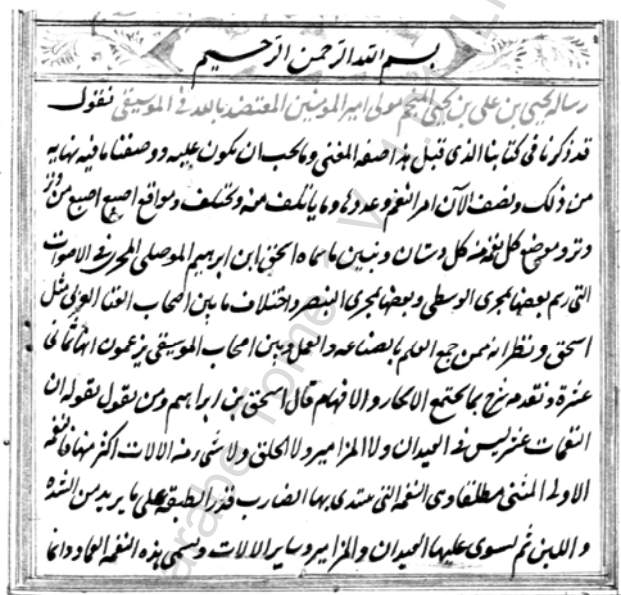 بسم الله الرحمن الرحيم
رسالة يحيى بن على بن يحيى المنجم مولى امير المومنين المعتضد بالله فى الموسيقى نقول
قد ذكرنا فى كتابنا الذى قبل هذا صفه المغنى وما يجب ان يكون عليه ووصفنا ما فيه نهايه
من ذلك ونصف الآن امر النغم وعددها وما يأتلف منه ويختلف ومواقع اصبع اصبع من وتر
وتر وموضع كل نغمه من كل دستان ونبين ما سماه اسحق ابن ابرهيم الموصلى المجرى فى الاصوات
التى رسم بعضها بمجرى الوسطى وبعضها بمجرى البنصر واختلاف ما بين اصحاب الغنا العربى مثل
اسحق ونظرائه ممن جمع العلم بالصناعه والعمل وبين اصحاب الموسيقى يزعمون انها ثمانى
عشرة ونقدمه بما يحتمع الافهام قال اسحق بن ابراهيم ومن يقول بقوله ان
النغمات عشر ليس فى العيدان ولا المزامير ولا الحلق ولا شى من الالات اكثر منها فالنغمه
الاولى المثنى مطلقا وهى النغمه التى يبتدى بها الضارب قدر الطبقه على ما يريد من الشده
و اللين ثم يسوى عليها العيدان والمزامير وساير الالات وتسمى هذه النغمه العماد وانما